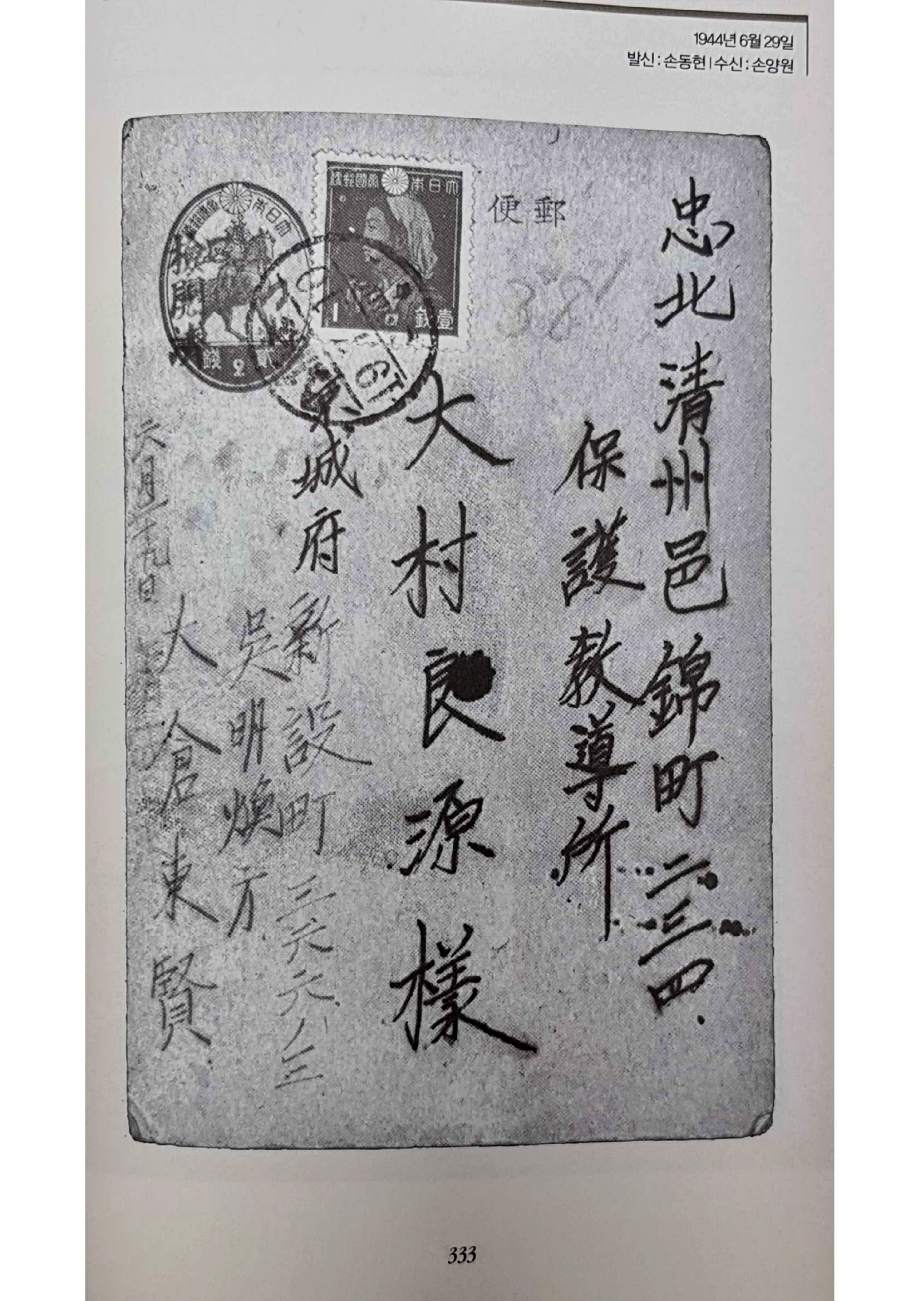 1944년 6월 29일
발신 : 손동현 | 수신 : 손양원
郵便
忠北清州邑錦町二三四
保護教導所
大村良源様
京城府新設町三六六ノ八三
吳明煥方
大倉東賢
六月二十九日
大日本帝國郵便
壹銭
1
大日本帝國郵便
2
333